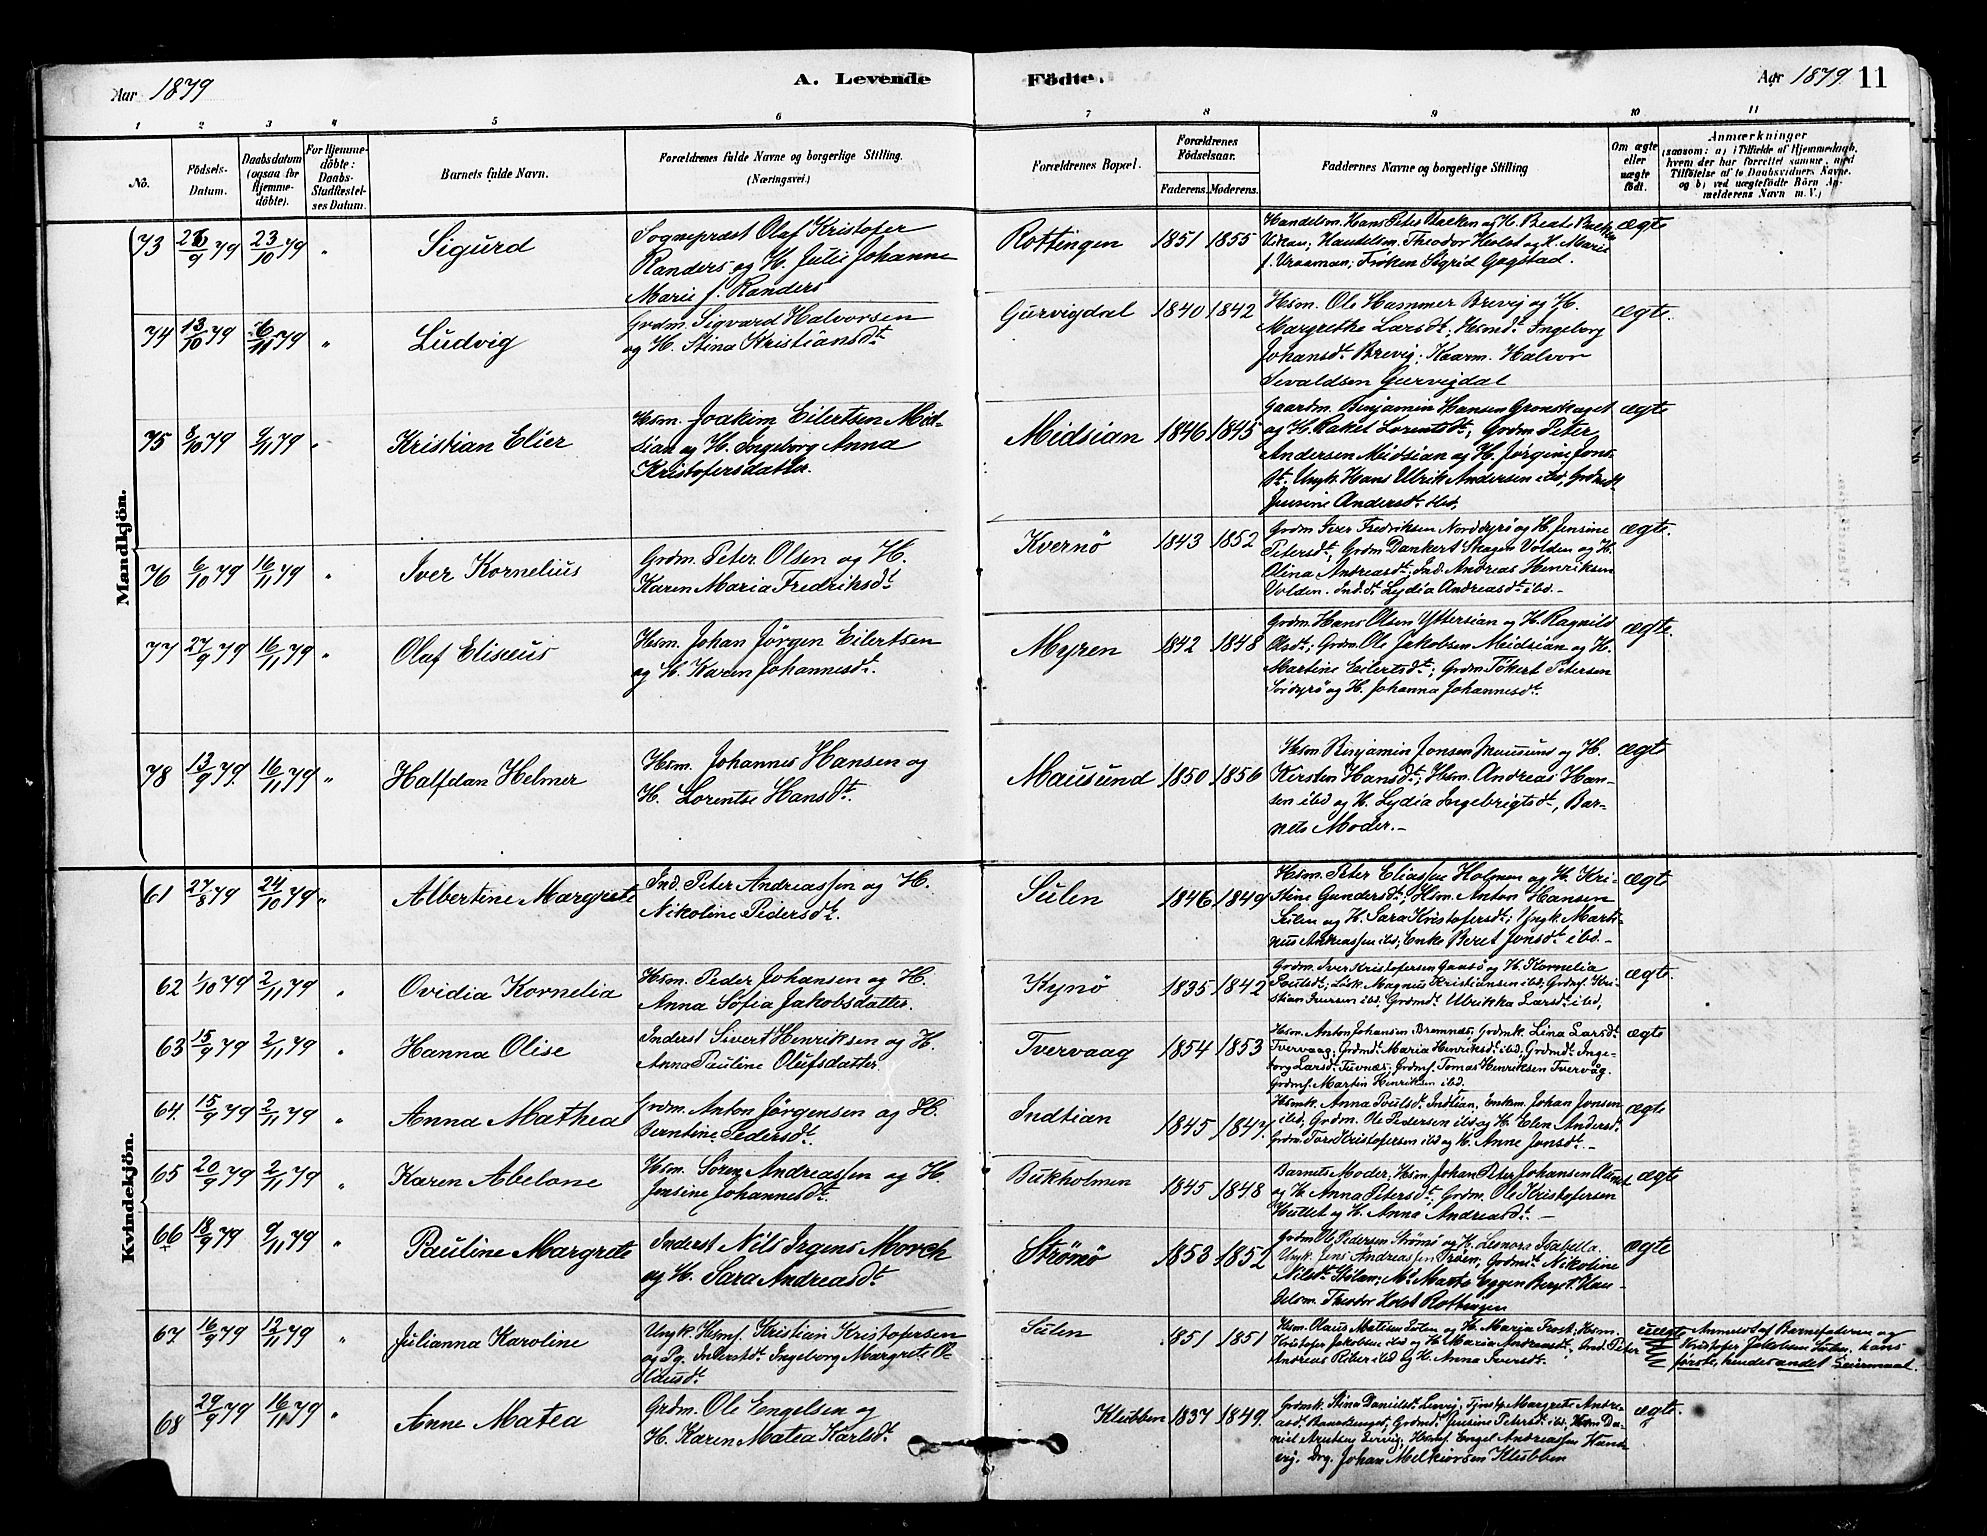 Aar 1879
A. Levende
Födte.
Aar 1879.
11
1 2 3 4 5 6 7 8 9 10 11
No.
Födsels-
Datum.
Daabsdatum
(ogsaa for
Hjemme-
döbte).
For Hjemme-
döbte:
Daabs-
Stadfæstel-
ses Datum.
Barnets fulde Navn.
Forældrenes fulde Navne og borgerlige Stilling.
(Næringsvei.)
Forældrenes Bopæl.
Forældrenes
Födselsaar.
Faderens. Moderens.
Faddernes Navne og borgerlige Stilling
Om ægte
eller
uægte
födt.
Anmærkninger
(saasom: a) i Tilfælde af Hjemmedaab,
hvem der har forrettet samme, med
Tilföielse af to Daabsvidners Navne,
og b) ved uægtefödte Börn An-
melderens Navn m. V.)
Mandkjön.
73 26/9 79 23/10 79 "
Sigurd
Sognepræst Olaf Kristofer
Randers og H. Julie Johanne
Marie f. Randers
Rottingen 1851 1855
Handelsm. Hans Peter Bakken og H. Beat Bakken
Vikan; Handelsm. Theodor Holst og H. Marie
f. Vraaman; Frøken Sigrid Gagstad.
ægte
74 13/10 79 6/11 79 "
Ludvig
Grdm. Sigvard Halvorsen
og H. Stina Kristiansdt.
Gurvigdal 1840 1842
Hsm. Ole Hammer Brevig og H.
Margrethe Larsdt; Hsmdt. Ingeborg
Johansdt. Brevig; Kaarm. Halvor
Sevaldsen Gurvigdal
ægte.
75 8/10 79 9/11 79 "
Kristian Elier
Hsm. Joakim Eilertsen Mid-
sian og H. Ingeborg Anna
Kristofersdatter.
Midsian 1846 1845
Gaardm. Binjamin Hansen Gronskaget
og H. Rakel Lorentsdt; Grdm. Peter
Andersen Midsian og H. Jørgine Jons-
dt. Ungk. Hans Ulrik Andersen ibd, Grdmdt
Jensine Andersdt. ibd.
ægte
76 6/10 79 16/11 79 "
Iver Kornelius
Grdm. Peter Olsen og H.
Karen Maria Fredriksdt.
Kvernö 1843 1852
Grdm Iver Fredriksen Norddyrø og H. Jensine
Petersdt; Grdm Dankert Skagen Volden og H.
Olina Andreasdt; Ind. Andreas Henriksen
Volden. Ind.dt Lydia Andreasdt ibd.-
ægte.
77 27/9 79 16/11 79 "
Olaf Elisæus
Hsm. Johan Jörgen Eilertsen
og H. Karen Johannesdt.
Myren 1842 1848
Grdm. Hans Olsen Yttersian og H. Ragnild
Olsdt; Grdm. Ole Jakobsen Midsian og H.
Martine Eilertsdt; Grdm. Tökert Petersen
Sørdyrö og H. Johanna Johannesdt.
ægte.
78 13/9 79. 16/11 79 "
Halfdan Helmer
Hsm. Johannes Hansen og
H. Lorentse Hansdt.
Mausund 1850 1856
Hsm Binjamin Jonsen Mausund og H.
Kirsten Hansdt; Hsm. Andreas Han-
sen ibd og H. Lydia Ingebrigtsdt, Bar-
nets Moder.-
ægte
Kvindekjön.
61 27/8 79 24/10 79 "
Albertine Margrete
Ind. Peter Andreassen og H.
Nikoline Pedersdt.
Sulen 1846 1849
Hsm. Peter Eliassen Holmen og H. Kri-
stine Gundersdt; Hsm. Anton Hansen
Sulen og H. Sara Kristofersdt; Ungk. Marti-
nus Andreassen ibd; Enke Beret Jonsdt ibd.-
ægte
62 1/10 79 2/11 79 "
Ovidia Kornelia
Hsm. Peder Johansen og H.
Anna Sofia Jakobsdatter.
Kynö 1835 1842
Grdm. Iver Kristofersen Gaasö og H. Kornelia
Poulsdt; Magnus Kristiansen ibd; Grdmf. Kri-
stian Iversen ibd; Grdmdt Ulrikka Larsdt ibd,
ægte.
63 15/9 79 2/11 79 "
Hanna Olise
Inderst Sivert Henriksen og H.
Anna Pauline Olufsdatter
Tvervaag 1854 1853
Hsm. Anton Johansen Bremnes; Grdmk. Lina Larsdt
Tvervaag; Grdmdt Maria Henriksdt ibd; Grdmdt. Inge-
borg Larsdt Tuvnæs; Grdmf. Tomas Henriksen Tvervåg.
Grdmf. Martin Henriksen ibd.
ægte
64. 15/9 79 2/11 79 "
Anna Mathea
Grdm. Anton Jörgensen og H.
Berntine Pedersdt.
Indtian 1845 1847.
Hsmk. Anna Poulsdt Indtian, Enkm. Johan Jonsen
ibd, Grdm. Ole Pedersen ibd og H. Elen Andersdt.
Grdm. Tore Kristofersen ibd og H. Anne Jonsdt.-
ægte
65 20/9 79 2/11 79 "
Karen Abelone
Hsm. Soren Andreassen og H.
Jensine Johannesdt.
Bukholmen 1845 1848
Barnets Moder; Hsm. Johan Peter Johansen
og H. Anna Petersdt; Grdm. Ole Kristofersen
Hullet og H. Anna Andreasdt.-
ægte
66 18/9 79 9/11 79 "
Pauline Margrete
Inderst Nils Irgens Morch
og H. Sara Andreasdt.
Strömö 1853 1852
Grdm. Ol Pedersen Strömö og H. Lenora Isabella
Ungk. Jens Andreassen Trøen; Grdmdt. Nikoline
Nilsdt. Md. Marta Eggen Berget. Han-
delsm. Theodor Holst Rottingen
ægte
67 16/9 79 12/11 79 "
Julianna Karoline
Ungk. Hsmf. Kristian Kristofersen
og Pg. Inderstdt. Ingeborg Margrete O-
lausdt.
Sulen 1851 1851
Hsm. Olaus Matisen Sulen og H. Maria Frost; Hsm.
Kristofer Jakobsen ibd og H. Maria Andreasdt; Ind. Peter
Andreas Riber ibd og H. Anna Iversdt.
uægte
Anmeldt af Barnefaderen og
Kristofer Jakobsen Sulen, hans
første, hendes andet Leiermaal.
68 29/9 79 16/11 79 "
Anne Matea
Grdm. Ole Engelsen og
H. Karen Matea Karlsdt.
Klubben 1837 1849.
Grdmk. Stina Danielsdt Lervig; Tjenstp. Margrete Andre-
asdt. Grdmdt. Jensine Petersdt ibd; Hsm Da-
niel Arntsen Lervig; Hsmf. Engel Andreassen Hand-
vig. Drg. Johan Melkiorsen Klubben
ægte.